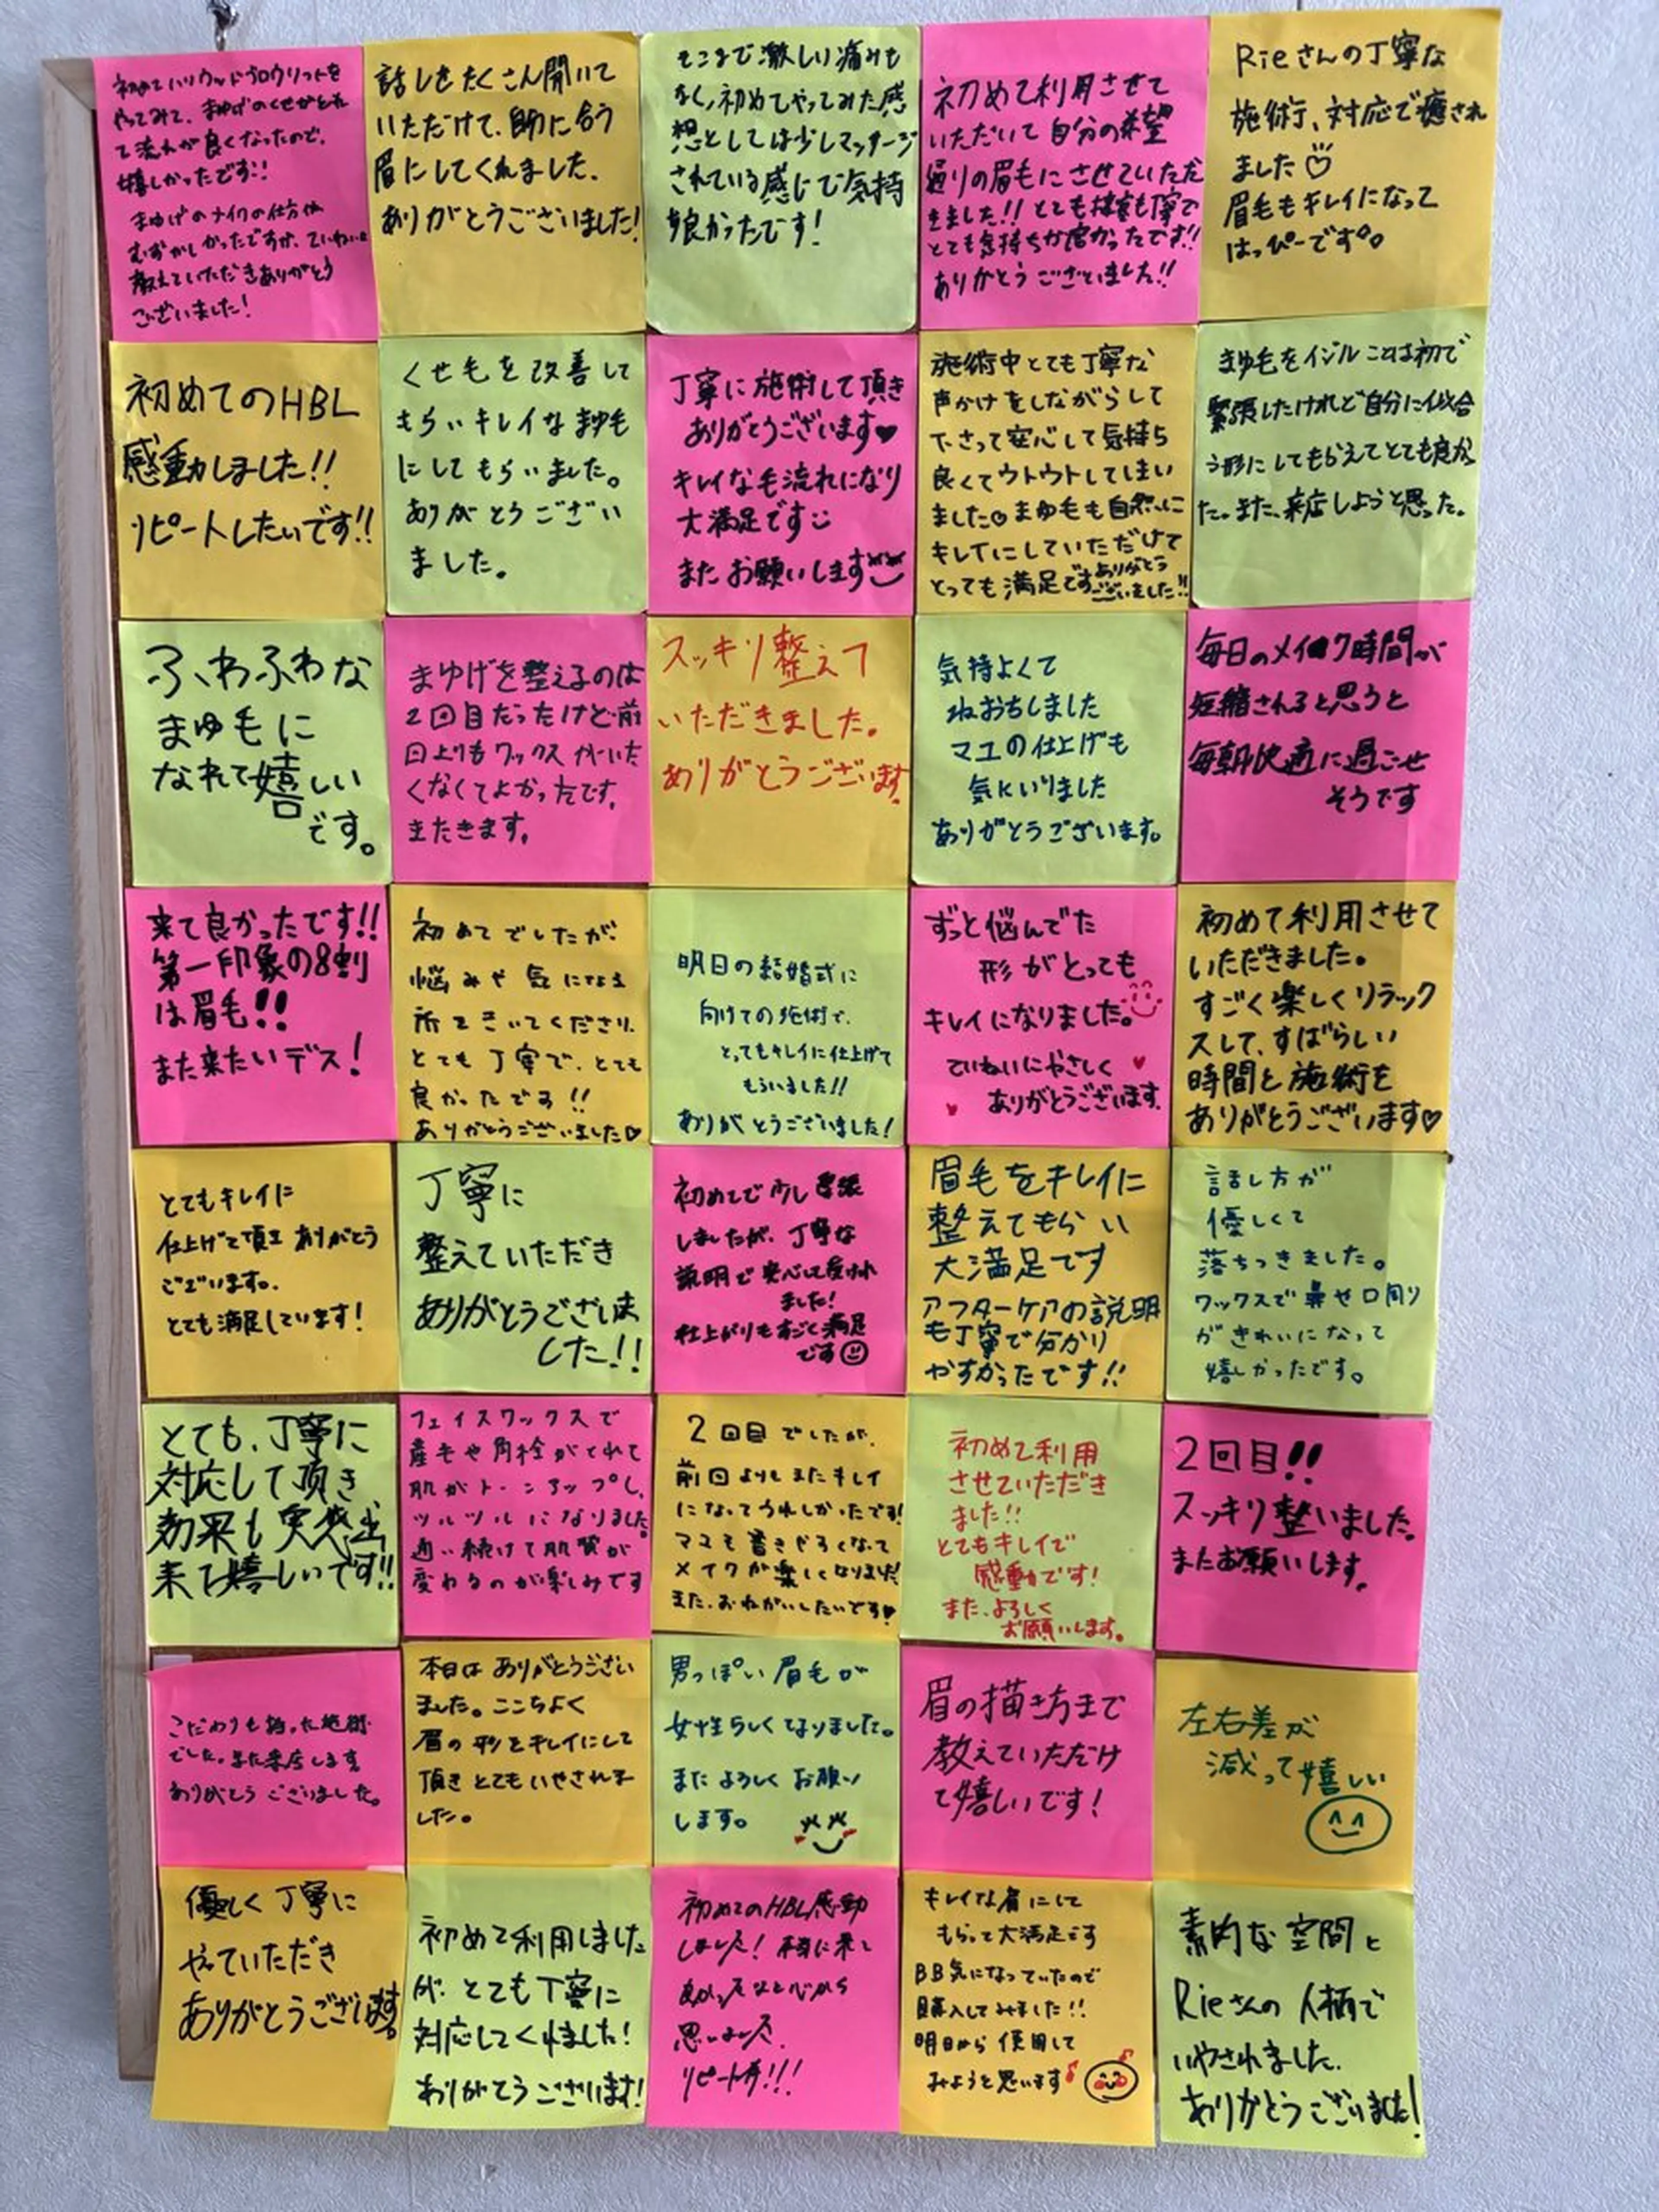 初めてハリウッドブロウリフトを
やってみて、まゆげのくせがとれ
て流れが良くなったので、
嬉しかったです!!
まゆげのメイクの仕方は
むずかしかったですが、ていねいに
教えていただきありがとう
ございました!
話しをたくさん聞いて
いただけて、自分に合う
眉にしてくれました。
ありがとうございました!
そこまで激しい痛みも
なく、初めてやってみた感
想としては少しマッサージ
されている感じで気持
ち良かったです!
初めて利用させて
いただいて自分の希望
通りの眉毛にさせていただ
きました!!とても接客も丁寧で
とても気持ちが良かったです!!
ありがとうございました!!
Rieさんの丁寧な
施術、対応で癒され
ました♡
眉毛もキレイになって
はっぴーです
初めてのHBL
感動しました!!
リピートしたいです!!
くせ毛を改善して
もらいキレイなまゆ毛
にしてもらいました。
ありがとうござい
ました。
丁寧に施術して頂き
ありがとうございます♥
キレイな毛流れになり
大満足です
またお願いします
施術中とても丁寧な
声かけをしながらして
下さって安心して気持ち
良くてウトウトしてしまい
ました。まゆ毛も自然に
キレイにしていただけて
とっても満足ですありがとう
ございました!!
まゆ毛をイジルことは初で
緊張したけれど自分に似合
う形にしてもらえてとても良かっ
た。また、来店しようと思った。
ふわふわな
まゆ毛に
なれて嬉しい
です。
まゆげを整えるのは
2回目だったけど前
回よりもワックスがいた
くなくてよかったです。
またきます。
スッキリ整えて
いただきました。
ありがとうございます。
気持よくて
ねおちしました
マユの仕上げも
気にいりました
ありがとうございます。
毎日のメイク時間が
短縮されると思うと
毎朝快適に過ごせ
そうです
来て良かったです!!
第一印象の8割
は眉毛!!
また来たいデス!
初めてでしたが、
悩みや気になる
所をきいてくださり、
とても丁寧で、とても
良かったです!!
ありがとうございました♡
明日の結婚式に
向けての施術で、
とってもキレイに仕上げて
もらいました!!
ありがとうございました!
ずっと悩んでた
形がとっても
キレイになりました。
ていねいにやさしく
ありがとうございます。
初めて利用させて
いただきました。
すごく楽しくリラック
スして、すばらしい
時間と施術を
ありがとうございます♡
とてもキレイに
仕上げて頂き ありがとう
ございます。
とても満足しています!
丁寧に
整えていただき
ありがとうございま
した!!
初めてで少し緊張
しましたが、丁寧な
説明で安心して受けれ
ました!
仕上がりもすごく満足
です
眉毛をキレイに
整えてもらい
大満足です
アフターケアの説明
も丁寧で分かり
やすかったです!!
話し方が
優しくて
落ちつきました。
ワックスで鼻せ口周り
がきれいになって
嬉しかったです。
とても、丁寧に
対応して頂き
効果も実感出
来て嬉しいです!!
フェイスワックスで
産毛や角栓がとれて
肌がトーンアップし、
ツルツルになりました。
通い続けて肌質が
変わるのが楽しみです
2回目でしたが、
前回よりもまたキレイ
になってうれしかったです!
マユも書きやすくなって
メイクが楽しくなりました!
また、おねがいしたいです♥
初めて利用
させていただき
ました!!
とてもキレイで
感動です!
また、よろしく
お願いします。
2回目!!
スッキリ整いました。
またお願いします。
こだわりも持った施術
でした。また来店します。
ありがとうございました。
本日はありがとうござい
ました。ここちよく
眉の形をキレイにして
頂きとてもいやされま
した。
男っぽい眉毛が
女性らしくなりました。
またよろしくお願い
します。
眉の描き方まで
教えていただけ
て嬉しいです!
左右差が
減って嬉しい
優しく丁寧に
やっていただき
ありがとうございます。
初めて利用しました
が、とても丁寧に
対応してくれました!
ありがとうございます!
初めてのHBL感動
しました!本当に来て
よかったなと心から
思いました。
リピート!!!
キレイな眉にして
もらって大満足です
BB気になっていたので
購入してみました!!
明日から使用して
みようと思います
素的な空間と
Rieさんの人柄で
いやされました。
ありがとうございました!